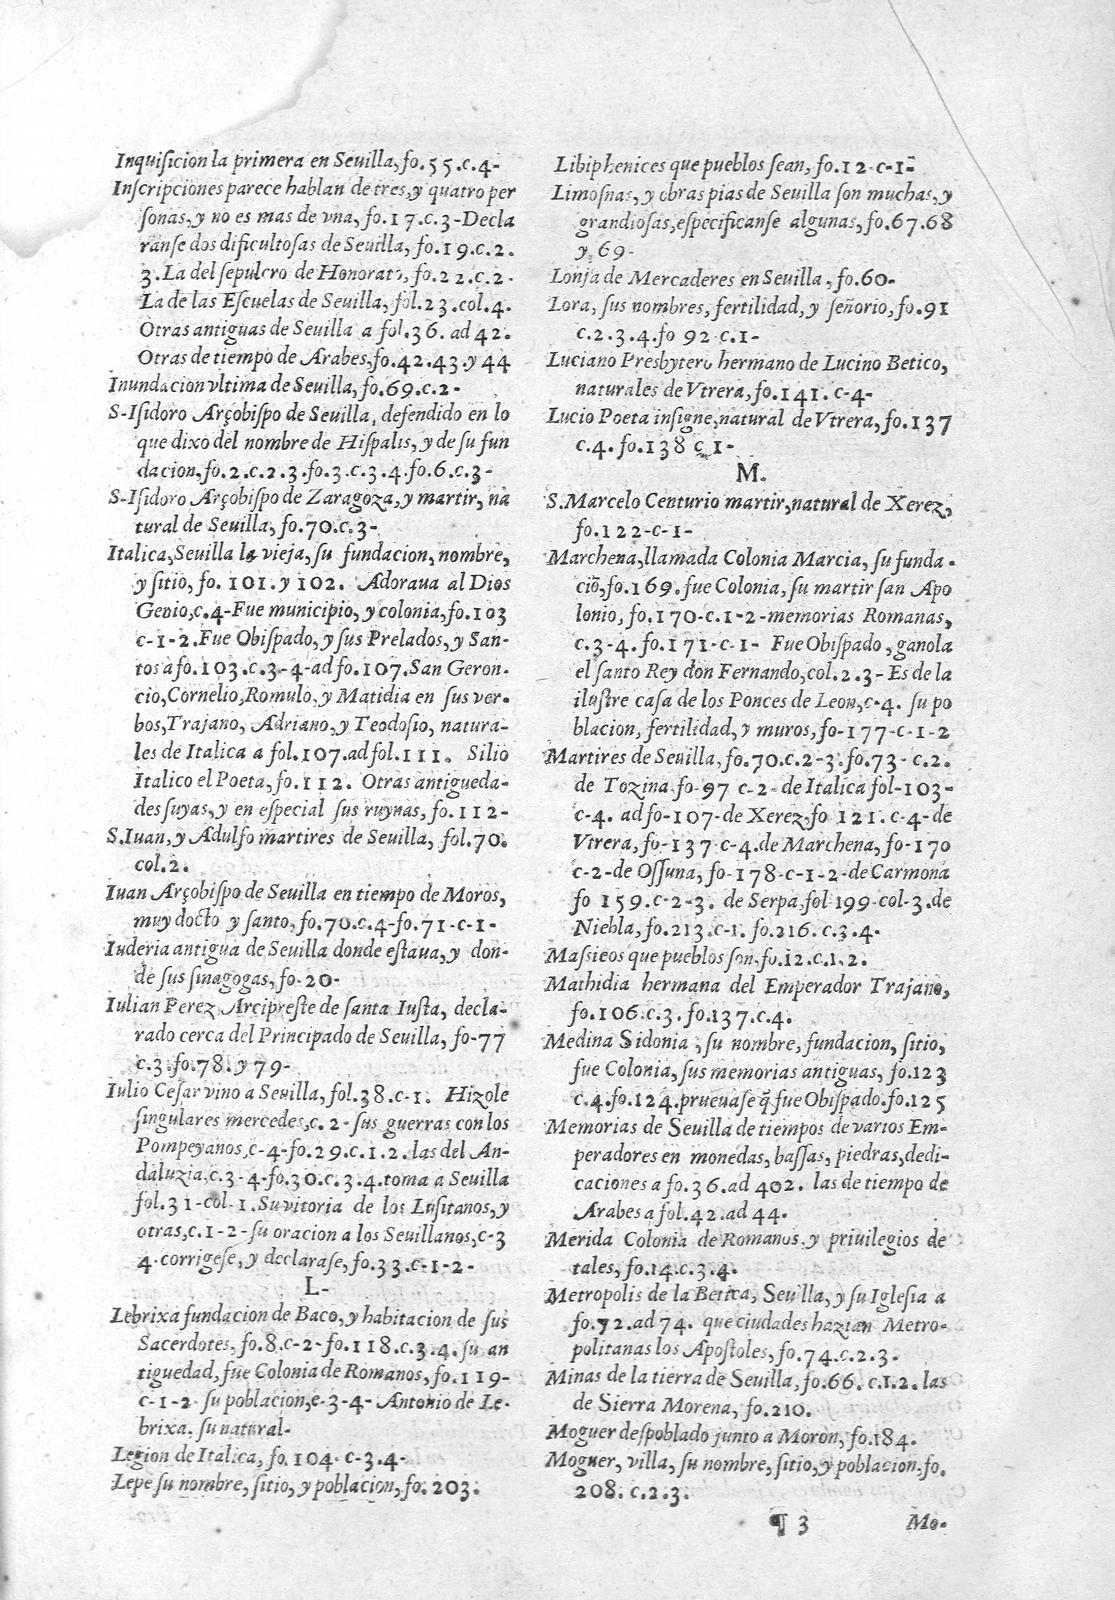 Inquiſicion la primera en Seuilla, fo.55.c.4-
Inſcripciones parece hablan de tres, y quatro per
ſonas, y no es mas de vna, fo.17.c.3-Decla
ranſe dos dificultoſas de Seuilla, fo.19.c.2.
3.La del ſepulcro de Honorato, fo.22.c.2-
La de las Eſcuelas de Seuilla, fol.23.col.4.
Otras antiguas de Seuilla a fol.36. ad 42.
Otras de tiempo de Arabes, fo.42.43.y 44
Inundacion vltima de Seuilla, fo.69.c.2-
S-Iſidoro Arçobiſpo de Seuilla, defendido en lo
que dixo del nombre de Hiſpalis, y de su fun
dacion, fo.2.c.2.3.fo.3.c.3.4.fo.6.c.3-
S-Iſidoro Arçobiſpo de Zaragoza, y martir, na
tural de Seuilla, fo.70.c.3-
Italica, Seuilla la vieja, su fundacion, nombre,
y ſitio, fo. 101.y 102. Adoraua al Dios
Genio, c.4-Fue municipio, y colonia, fo.103
c-1-2.Fue Obiſpado, y sus Prelados, y San-
tos a fo.103.c.3-4-ad fo.107.San Geron-
cio, Cornelio, Romulo, y Matidia en sus ver-
bos, Trajano, Adriano, y Teodoſio, natura-
les de Italica a fol.107.ad fol.111. Silio
Italico el Poeta, fo.112. Otras antigueda-
des ſuyas, y en eſpecial ſus ruynas, fo.112-
S.Iuan, y Adulfo martires de Seuilla, fol.70.
col.2.
Iuan Arçobiſpo de Seuilla en tiempo de Moros,
muy docto y ſanto, fo.70.c.4-fo.71-c-1-
Iuderia antigua de Seuilla donde eſtaua, y don-
de ſus ſinagogas, fo-20-
Iulian Perez Arcipreſte de ſanta Iuſta, decla-
rado cerca del Principado de Seuilla, fo-77
c.3.fo.78.y 79-
Iulio Ceſar vino a Seuilla, fol.38.c-1. Hizole
ſingulares mercedes, c.2-ſus guerras con los
Pompeyanos, c-4-fo.29.c.1.2.las del An-
daluzia, c.3-4-fo.30.c.3.4.toma a Seuilla
fol.31-col-1.Su vitoria de los Luſitanos, y
otras, c.1-2-ſu oracion a los Seuillanos, c-3
4.corrigeſe, y declaraſe, fo.33.c-1-2-
L-
Lebrixa fundacion de Baco, y habitacion de ſus
Sacerdotes, fo.8.c-2-fo.118.c.3.4.ſu an
tiguedad, fue Colonia de Romanos, fo.119-
c-1-2-ſu poblacion, c-3-4- Antonio de Le-
brixa, ſu natural-
Legion de Italica, fo.104-c-3.4-
Lepe ſu nombre, ſitio, y poblacion, fo.203.
Libiphenices que pueblos ſean, fo.12-c-1-
Limoſnas, y obras pias de Seuilla ſon muchas, y
grandioſas, eſpecificanſe algunas, fo.67.68
y 69-
Lonja de Mercaderes en Seuilla, fo.60-
Lora, ſus nombres, fertilidad, y ſeñorio, fo.91
c.2.3.4.fo 92 c.1-
Luciano Presbytero hermano de Lucino Betico,
naturales de Vtrera, fo.141.c-4-
Lucio Poeta inſigne, natural de Vtrera, fo.137
c.4.fo.138 c 1-
M.
S.Marcelo Centurio martir, natural de Xerez,
fo.122-c-1-
Marchena, llamada Colonia Marcia, ſu funda-
ciõ, fo.169. fue Colonia, ſu martir ſan Apo
lonio, fo.170-c.1-2-memorias Romanas,
c.3-4.fo.171-c-1- Fue Obiſpado, ganola
el ſanto Rey don Fernando, col.2.3-Es de la
iluſtre caſa de los Ponces de Leon, c-4. ſu po
blacion, fertilidad, y muros, fo-177-c-1-2
Martires de Seuilla, fo.70.c.2-3.fo.73-c.2.
de Tozina fo-97 c-2-de Italica fol-103-
c-4. ad fo-107-de Xerez.fo 121.c-4-de
Vtrera, fo-137 c-4.de Marchena, fo-170
c-2-de Oſſuna, fo-178-c-1-2-de Carmona
fo 159.c-2-3. de Serpa, fol 199-col-3.de
Niebla, fo.213.c-1.fo.216.c.3.4-
Maſsieos que pueblos ſon, fo.12.c.1.2.
Mathidia hermana del Emperador Trajano,
fo.106.c.3.fo.137.c.4.
Medina Sidonia, ſu nombre, fundacion, ſitio,
fue Colonia, ſus memorias antiguas, fo.123
c.4.fo.124.prueuaſe q̃ fue Obiſpado.fo.125
Memorias de Seuilla de tiempos de varios Em-
peradores en monedas, baſſas, piedras, dedi-
caciones a fo.36.ad 402. las de tiempo de
Arabes a fol.42.ad 44.
Merida Colonia de Romanos, y priuilegios de
tales, fo.14.c.3.4.
Metropolis de la Betica, Seuilla, y ſu Igleſia a
fo.72.ad 74. que ciudades hazian Metro-
politanas los Apoſtoles, fo.74.c.2.3.
Minas de la tierra de Seuilla, fo.66. c.1.2. las
de Sierra Morena, fo.210.
Moguer deſpoblado junto a Moron, fo.184.
Moguer, villa, ſu nombre, ſitio, y poblacion, fo.
208. c.2.3.
¶ 3 Mo-